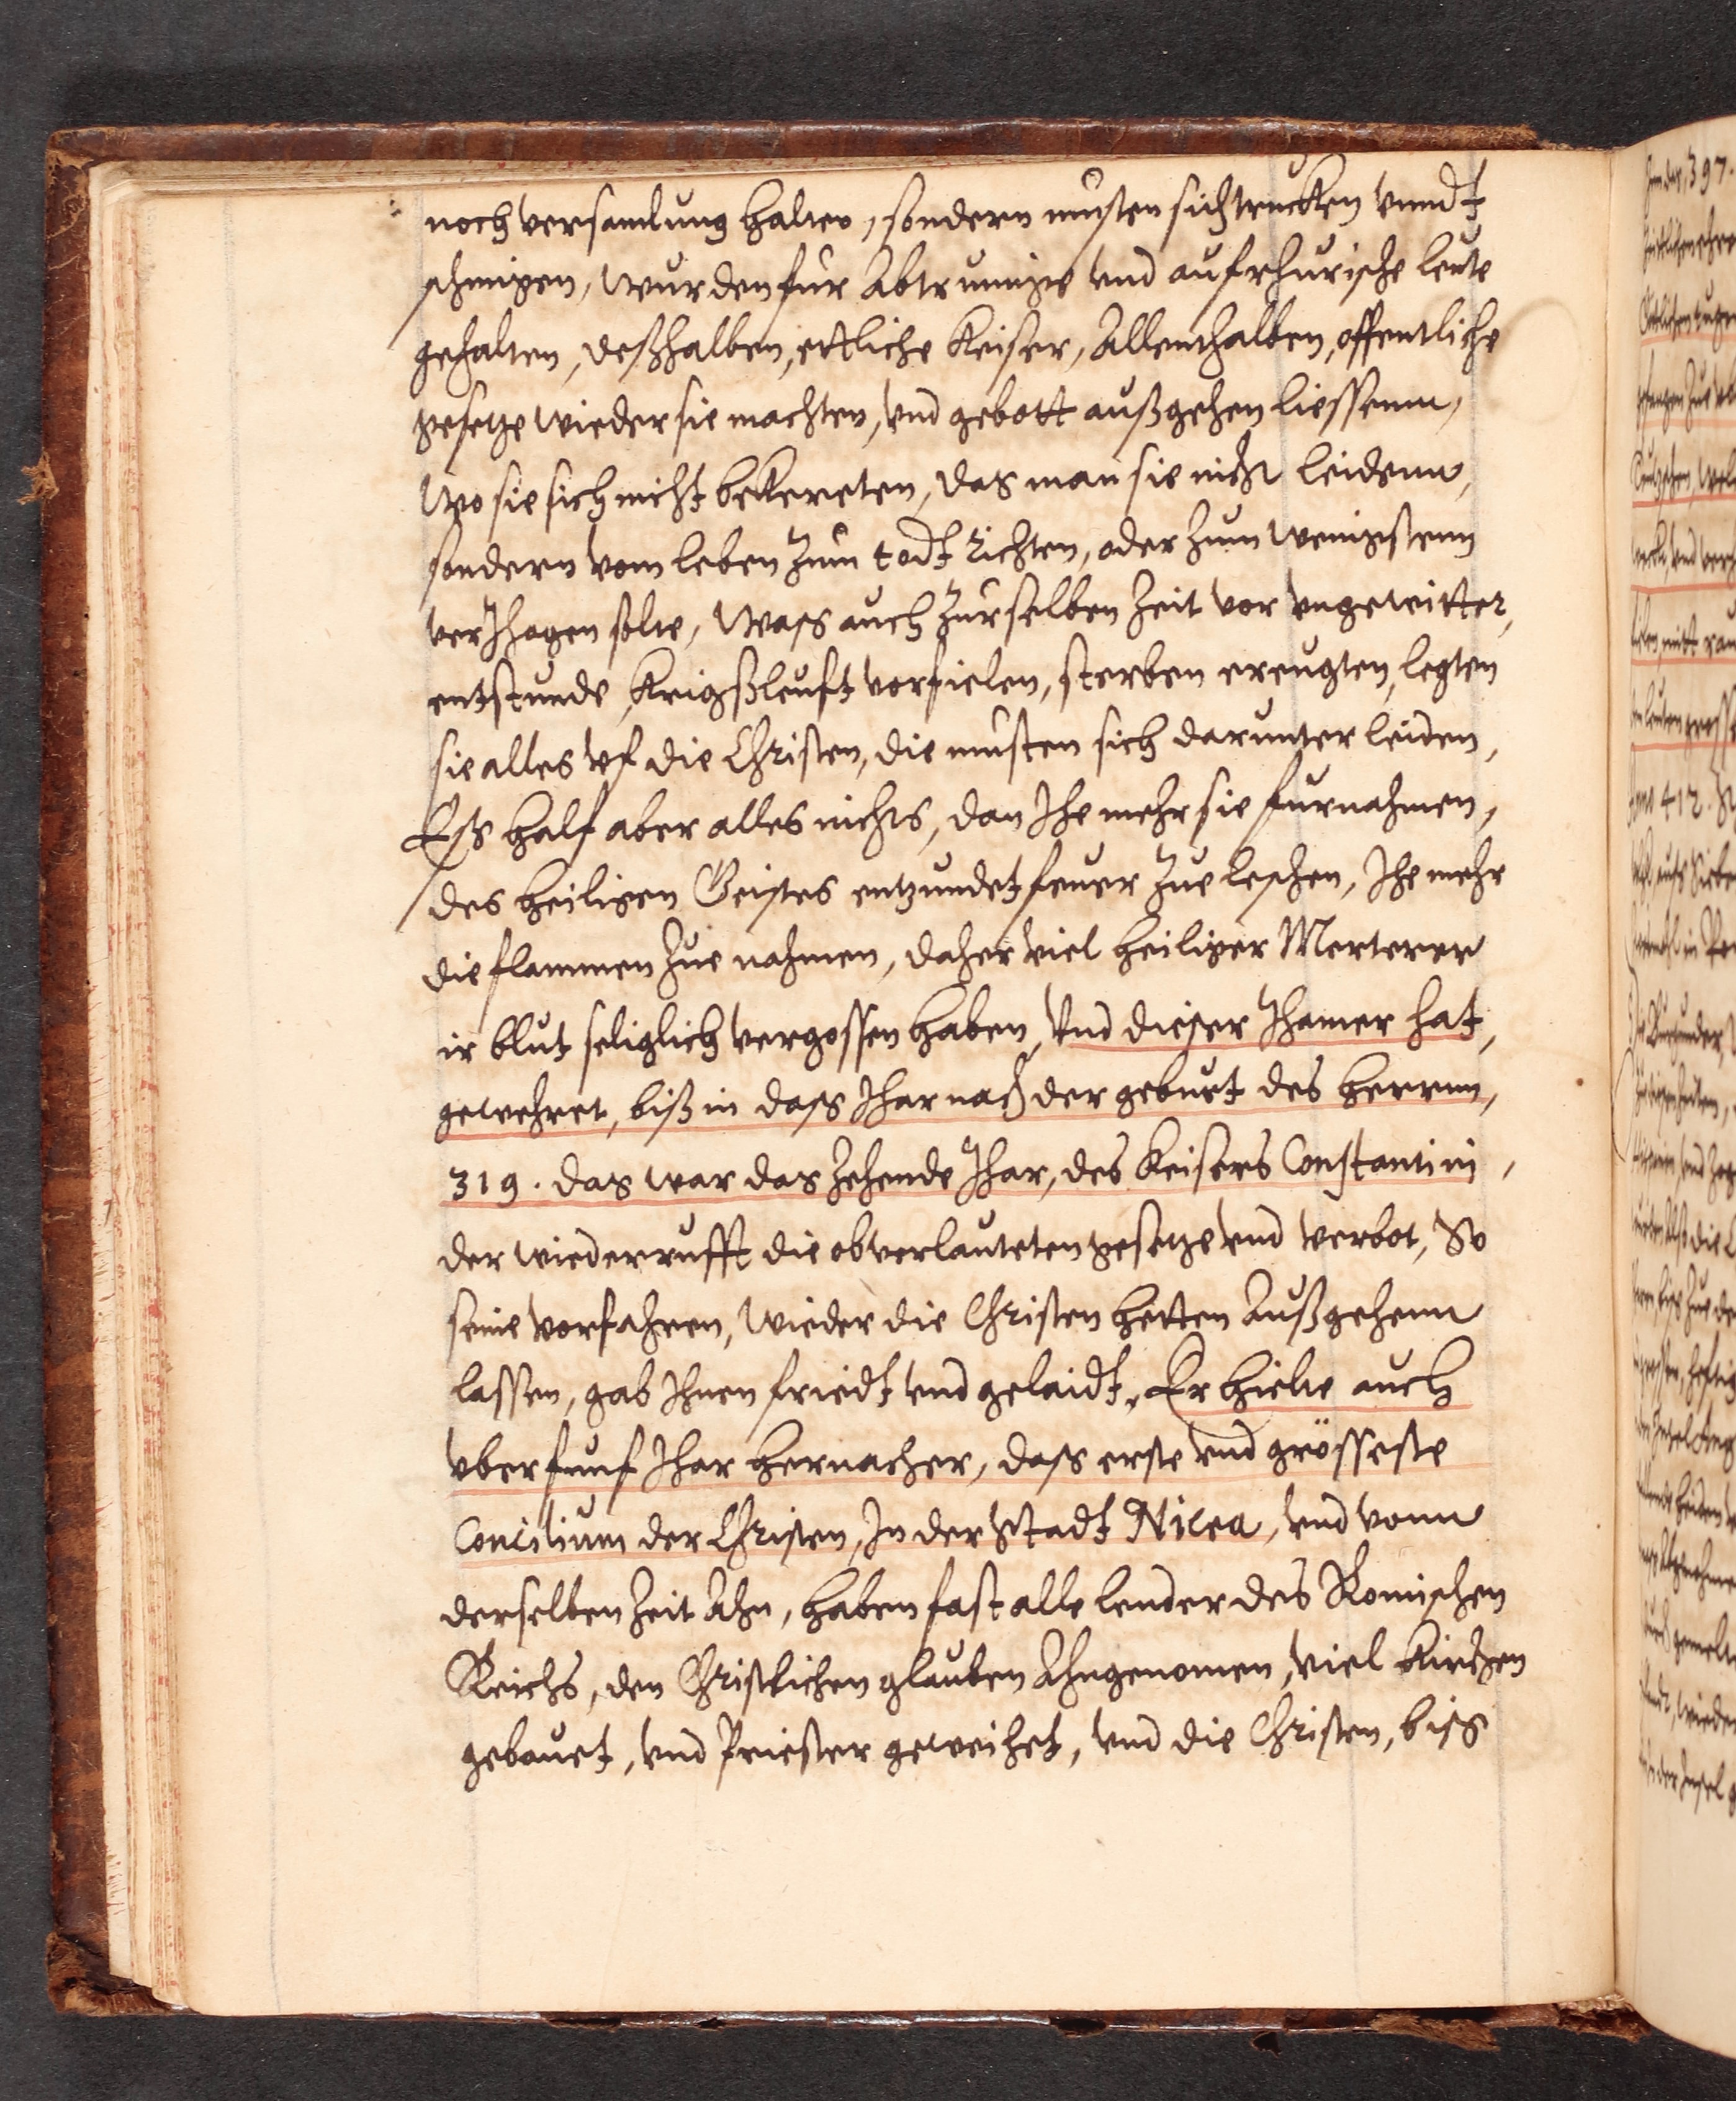 noch versamlung halten, sondern musten sich trucken vnndt
schmigen, wurden fur Abtrunnige vnd aufrhurische leute
gehalten, deßhalben, ettliche Keiser, Allenthalben, offentliche
gesetze wieder sie machten, vnd gebott außgehen liessenn,
Wo sie sich nicht bekereten, das man sie nicht leidenn,
sondern vom leben zum todt richten, oder zum wenigstenn
verJhagen solte, Wass auch zurselben Zeit vor vngewitter,
entstunde, Krigßleuft vorfielen, sterben ereugten, legten
sie alles vf die Christen, die musten sich darunter leiden,
Ess half aber alles nichts, dan Jhe mehr sie furnahmen,
des heiligen Geistes entzundet feuer zue leschen, Jhe mehr
die flammen zue nahmen, daher viel heiliger Merterer
ir blut seliglich vergossen haben, Vnd dieser Jhamer hat,
gewehret, biß in dass Jhar nach der geburt des herrnn,
319. das war das zehende Jhar, des Keisers Constantini,
der wiederrufft die obverlauteten gesetze vnd verbot, So
seine vorfahren, wieder die Christen hetten Außgehenn
lassen, gab Jhnen friedt vnd gelaidt, Er hielte auch
vber funf Jhar hernacher, dass erste vnd grösseste
Concilium der Christen, Jn der Stadt Nicea, vnd vonn
derselben Zeit Ahn, haben fast alle lender des Romischen
Reichs, den Christlichen glauben Ahngenomen, viel Kirchen
gebauet, vnd Priester geweihet, vnd die Christen, biss